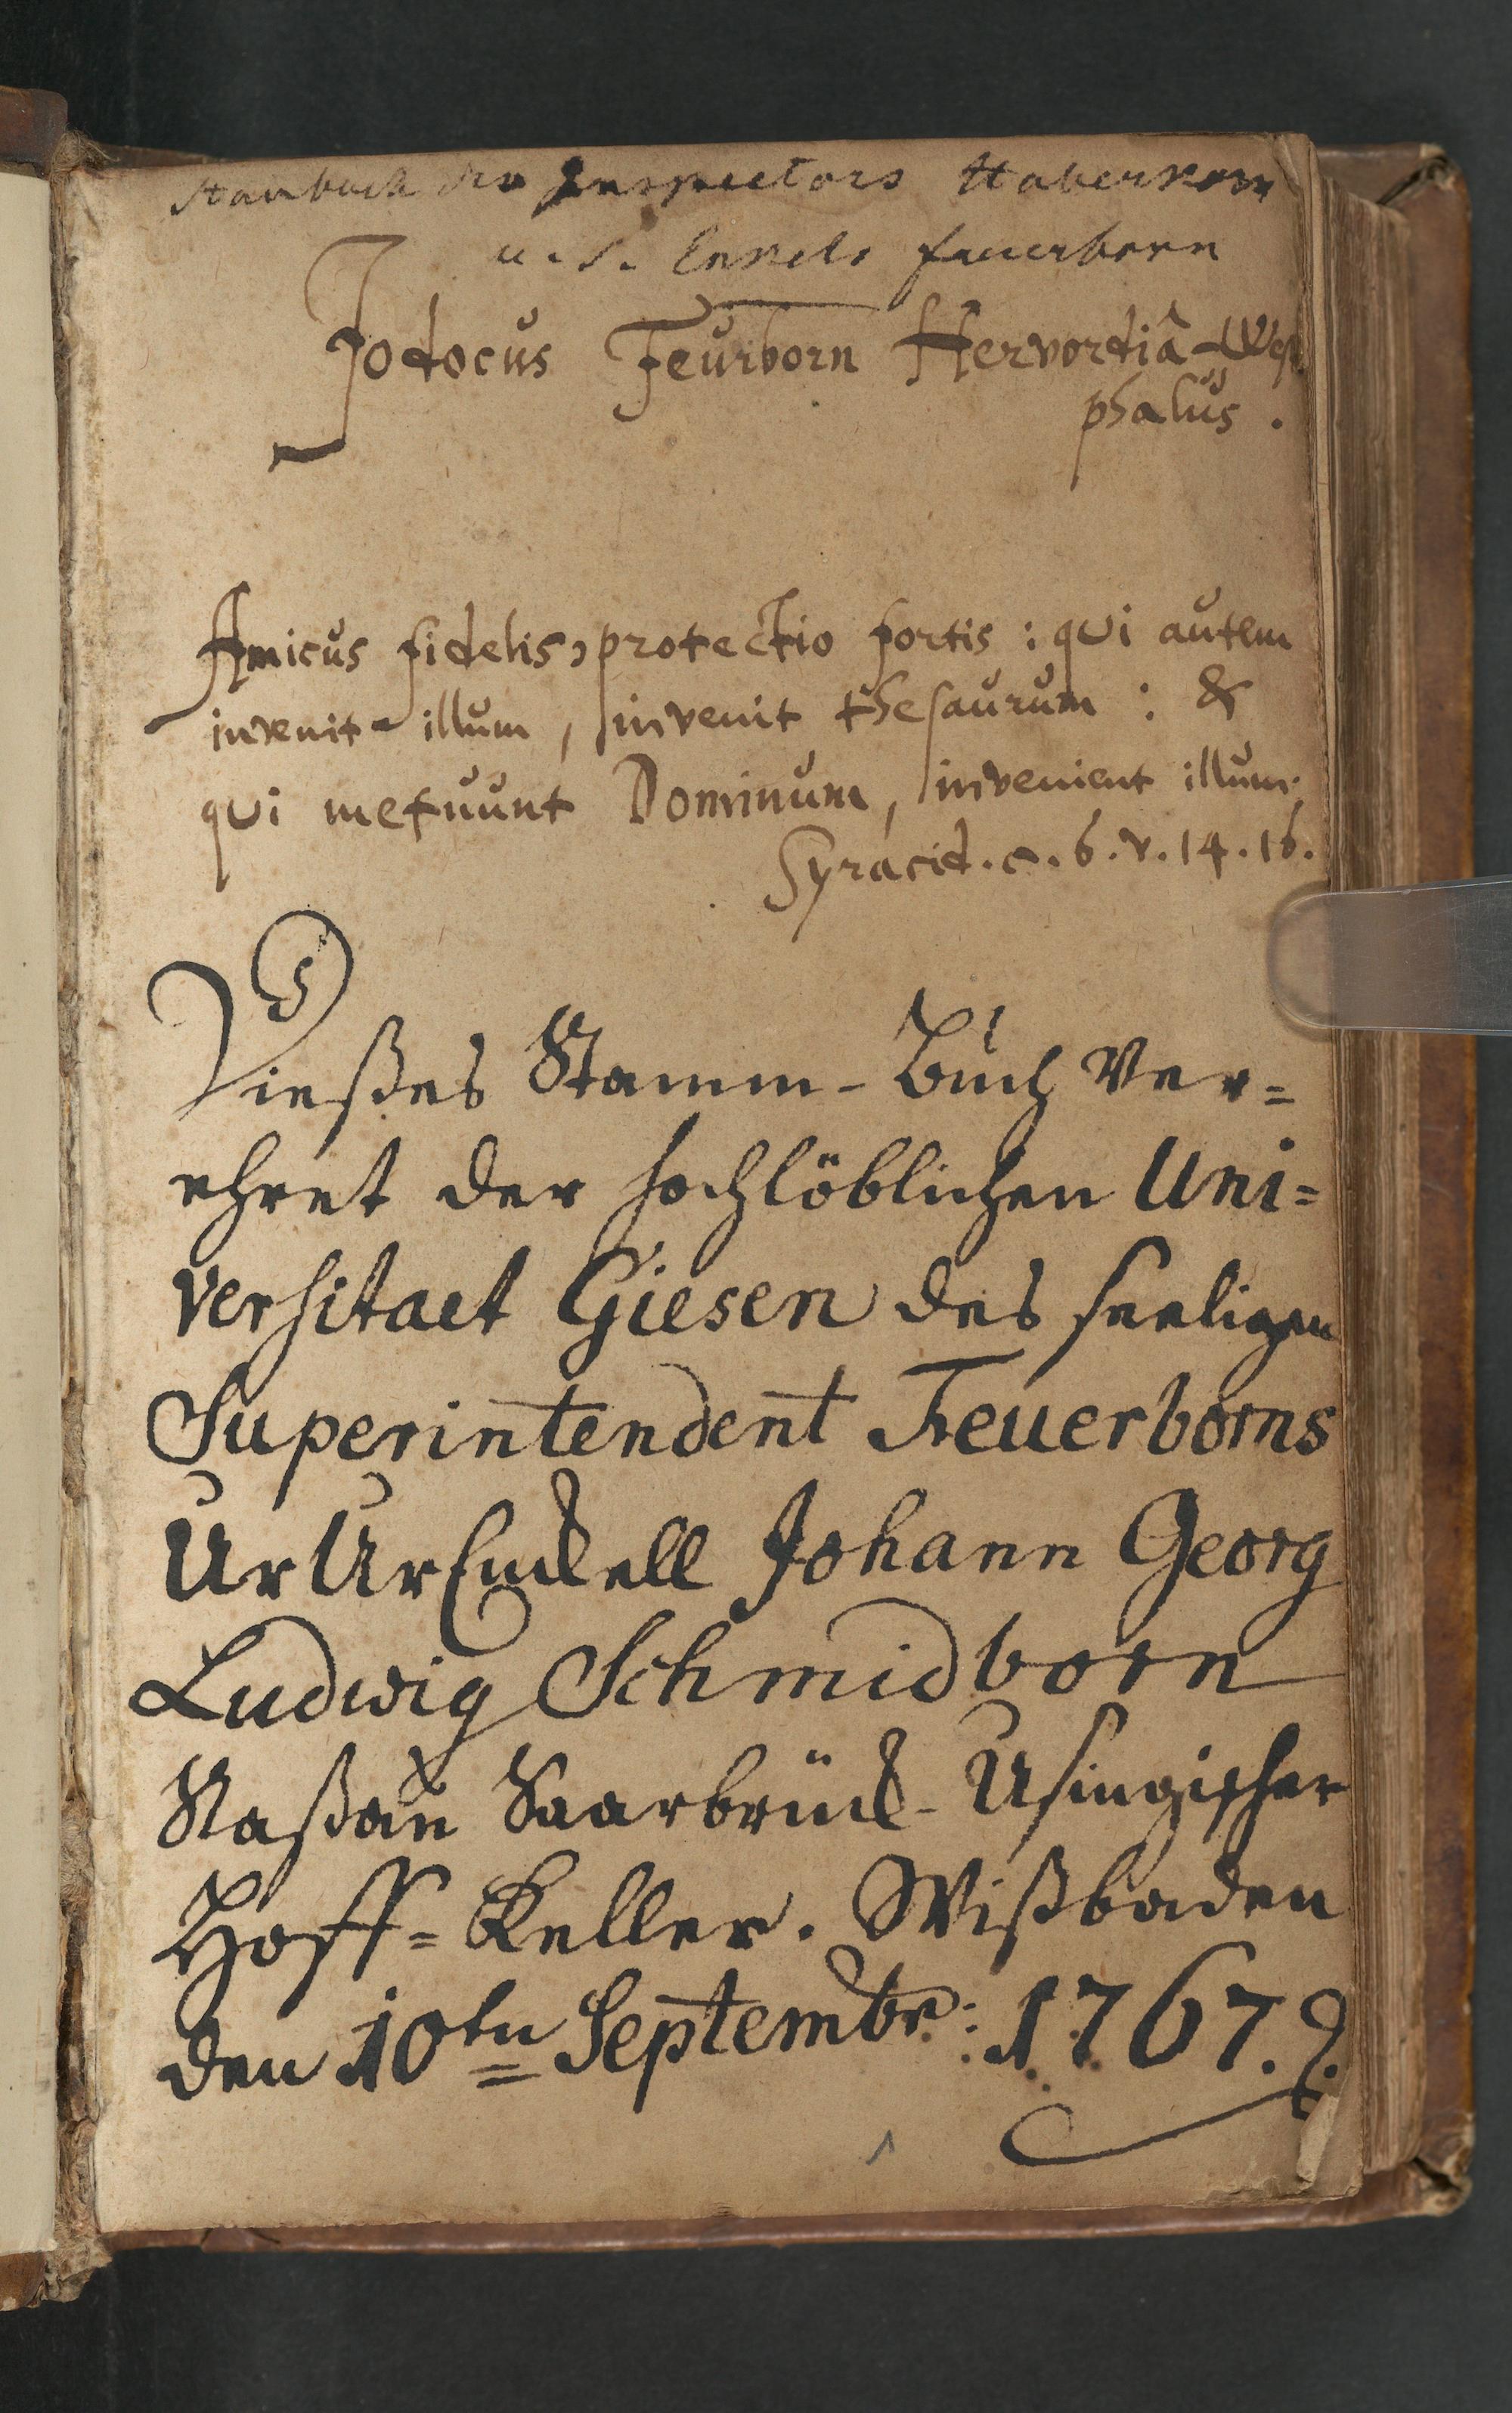 Stambuch des Inspectors Haberkorn
u. s. Enkels Feuerborn
Jodocus Feurborn Hervordiâ-West
phalus.
Amicus fidelis, protectio fortis: qui autem
invenit illum, invenit thesaurum: &
qui metuunt Dominum, invenient illum.
Syracid. c. 6. v. 14. 16.
Dießes Stamm-Buch Ver=
ehret der hochlöblichen Uni=
versitaet Giesen des seeligen
Superintendent Feuerborns
UrUrEnckell Johann Georg
Ludwig Schmidborn
Naßau Saarbrück-Usingischer
Hoff=Keller. Wißbaden
den 10ten Septembr: 1767.
1